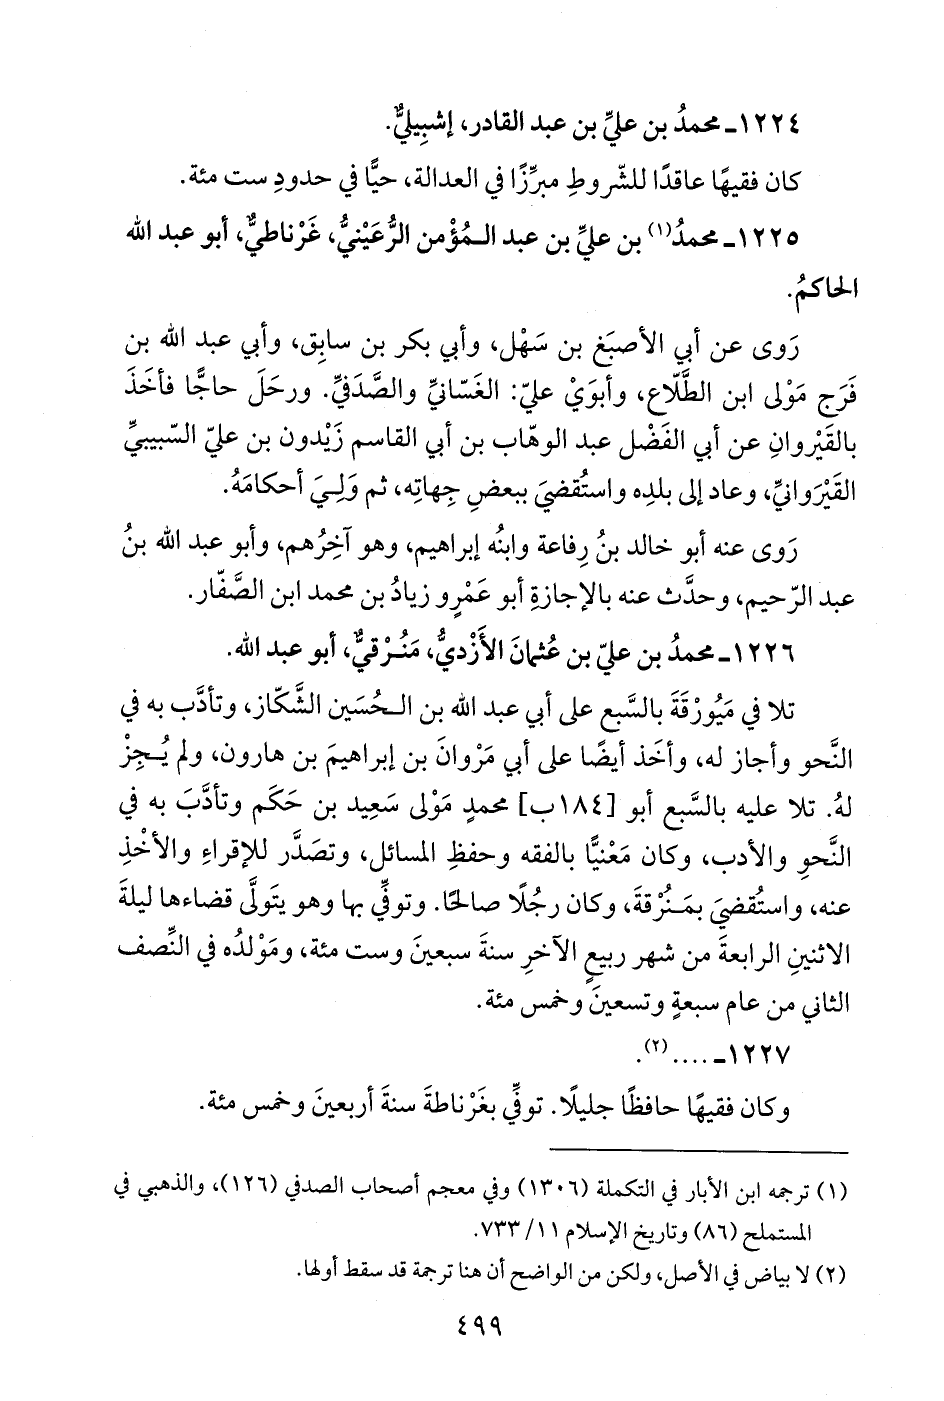 ١٢٢٤ـ محمدُ بن عليِّ بن عبد القادر، إشبِيليٌّ.
كان فقيهًا عاقدًا للشّروطِ مبرِّزًا في العدالة، حيًّا في حدودِ ست مئة.
١٢٢٥ـ محمدُ(١) بن عليِّ بن عبد المُؤْمن الرُّعَيْنيُّ، غَرْناطيٌّ، أبو عبد الله
الحاكمُ.
رَوى عن أبي الأصبَغ بن سَهْل، وأبي بكر بن سابِق، وأبي عبد الله بن
فَرَج مَوْلى ابن الطَّلّاع، وأبوَيْ عليّ: الغَسّانيِّ والصَّدَفيِّ. ورحَلَ حاجًّا فأخَذَ
بالقَيْروانِ عن أبي الفَضْل عبد الوهّاب بن أبي القاسم زَيْدون بن عليّ السّبيبيِّ
القَيْرَوانيِّ، وعاد إلى بلدِه واستُقضيَ ببعضِ جِهاتِه، ثم وَلِيَ أحكامَهُ.
رَوى عنه أبو خالد بنُ رِفاعة وابنُه إبراهيم، وهو آخِرُهم، وأبو عبد الله بنُ
عبد الرّحيم، وحدَّث عنه بالإجازةِ أبو عَمْرٍو زيادُ بن محمد ابن الصَّفّار.
١٢٢٦ـ محمدُ بن عليّ بن عُثمانَ الأَزْديُّ، مَنُرْقيٌّ، أبو عبد الله.
تلا في مَيُورْقَةَ بالسَّبع على أبي عبد الله بن الحُسَين الشَّكّاز، وتأدَّب به في
النَّحو وأجاز له، وأخَذ أيضًا على أبي مَرْوانَ بن إبراهيمَ بن هارون، ولم يُجِزْ
لهُ. تلا عليه بالسَّبع أبو [١٨٤ب] محمدٍ مَوْلى سَعِيد بن حَكَم وتأدَّبَ به في
النَّحوِ والأدب، وكان مَعْنيًّا بالفقه وحفظِ المسائل، وتصَدَّر للإقراءِ والأخْذِ
عنه، واستُقضيَ بمَنُرْقةَ، وكان رجُلًا صالحًا. وتوفِّي بها وهو يتَولَّى قضاءها ليلةَ
الاثنينِ الرابعةَ من شهر ربيعٍ الآخرِ سنةَ سبعينَ وست مئة، ومَوْلدُه في النِّصف
الثاني من عام سبعةٍ وتسعينَ وخمس مئة.
١٢٢٧ـ ....(٢).
وكان فقيهًا حافظًا جليلًا. توفِّي بغَرْناطةَ سنةَ أربعينَ وخمس مئة.
(١) ترجمه ابن الأبار في التكملة (١٣٠٦) وفي معجم أصحاب الصدفي (١٢٦)، والذهبي في
المستملح (٨٦) وتاريخ الإسلام ١١/ ٧٣٣.
(٢) لا بياض في الأصل، ولكن من الواضح أن هنا ترجمة قد سقط أولها.
٤٩٩